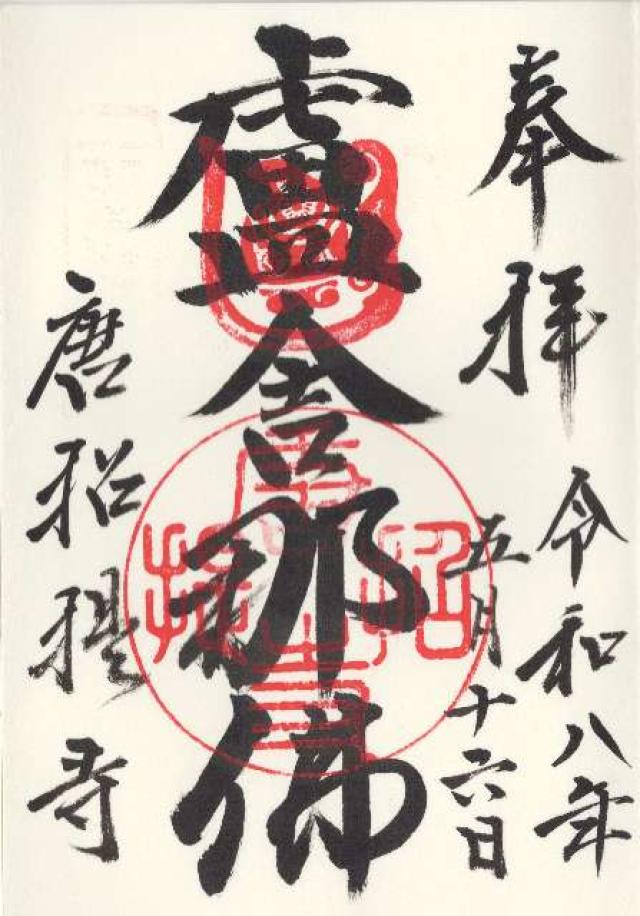 奉拝
令和八年
五月十六日
盧舎那佛
唐招提寺
唐招提寺